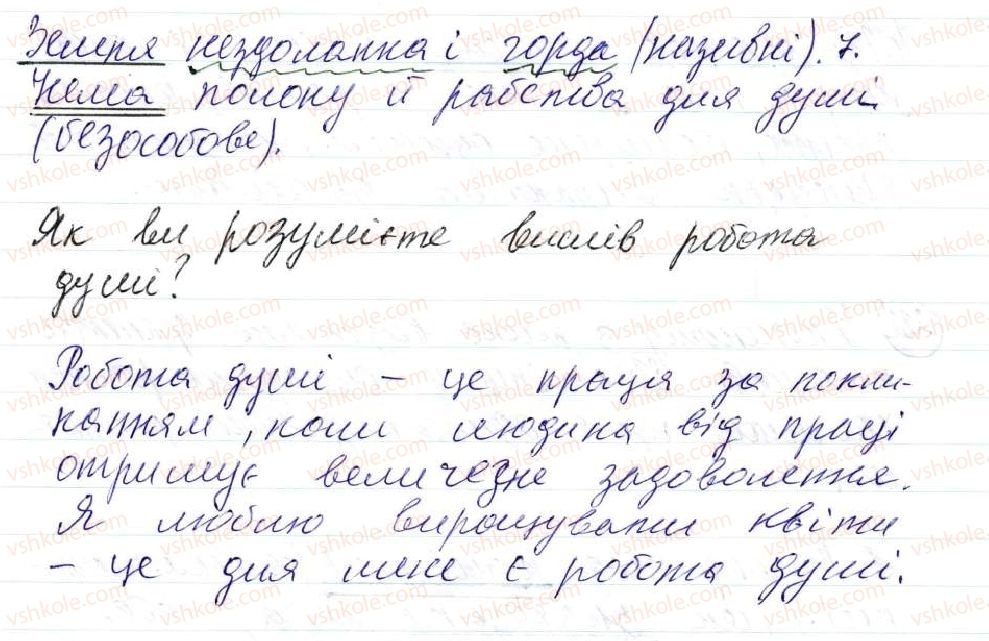 Земля нездоланна і горда (називні). 7.
Нема полону й рабства для душі
(безособове).
Як ви розумієте вислів робота
душі?
Робота душі – це праця за покли-
канням, коли людина від праці
отримує величезне задоволення.
Я люблю вирощувати квіти
– це для мене є робота душі.